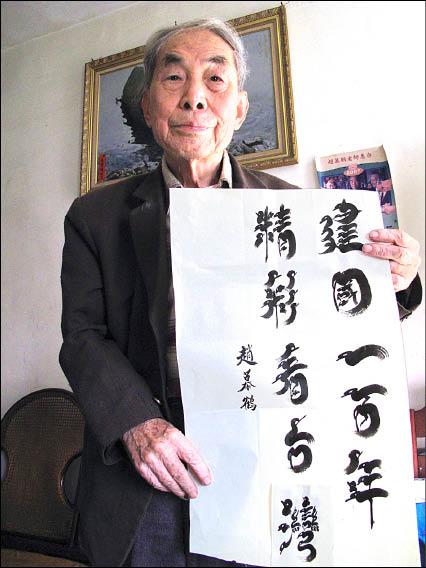 建國一百年
精彩看台灣
趙慕鶴
趙慕鶴老師